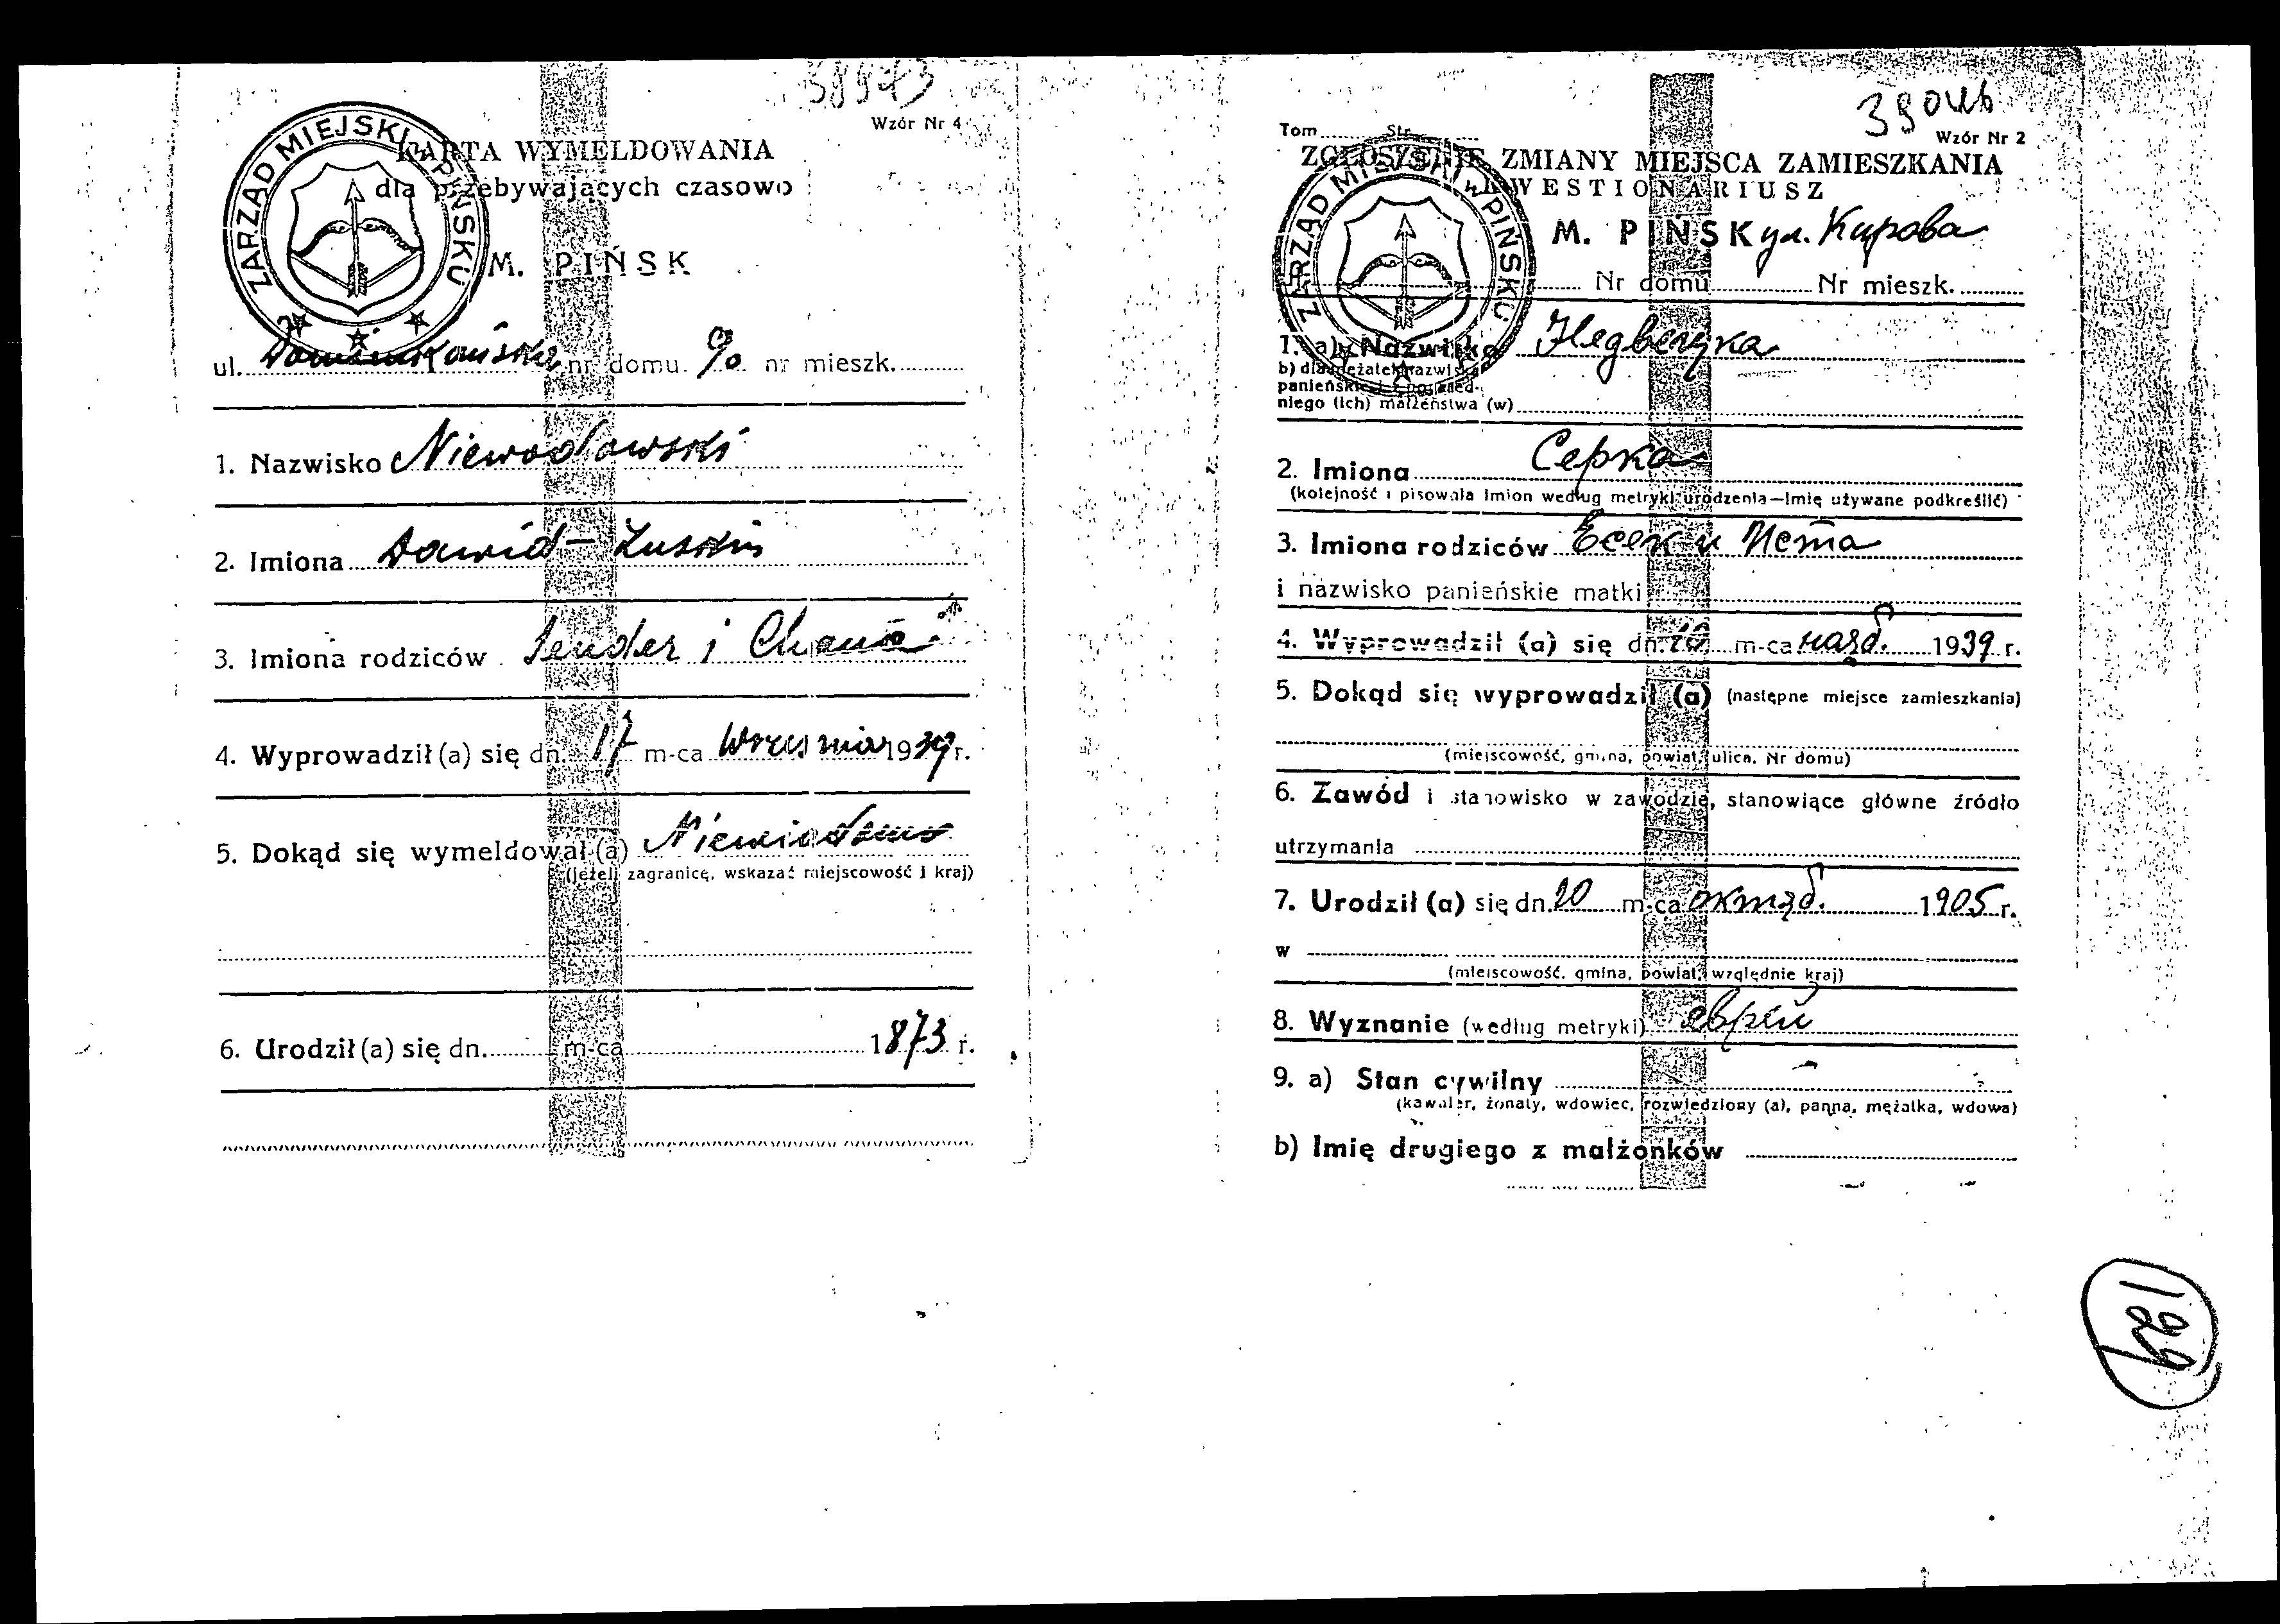 Wzór Nr 4
ZARZĄD MIEJSKI w PIŃSKU
KARTA WYMELDOWANIA
dla przebywających czasowo
M. PIŃSK
ul. Dominikańska nr domu 90 nr mieszk.
1. Nazwisko Niewodowski
2. Imiona Dawid-
3. Imiona rodziców Sender i Chana
4. Wyprowadził (a) się dn. 17 m-ca Września 1939 r.
5. Dokąd się wymeldował (a) Niewiadomo
(jeżeli zagranicę, wskazać miejscowość i kraj)
6. Urodził (a) się dn. m-ca 1873 r.
Tom Str.
Wzór Nr 2
ZGŁOSZENIE ZMIANY MIEJSCA ZAMIESZKANIA
KWESTIONARIUSZ
ZARZĄD MIEJSKI w PIŃSKU
M. PIŃSK ул. Кирова
Nr domu Nr mieszk.
1. a) Nazwisko
b) dla mężatek nazwisko
panieńskie i z poprzed-
niego (ich) małżeństwa (w)
2. Imiona Серка
(kolejność i pisownia imion według metryki urodzenia—imię używane podkreślić)
3. Imiona rodziców и
i nazwisko panieńskie matki
4. Wyprowadził (a) się dn. m-ca 1939 r.
5. Dokąd się wyprowadził (a) (następne miejsce zamieszkania)
(miejscowość, gmina, powiat, ulica, Nr domu)
6. Zawód i stanowisko w zawodzie, stanowiące główne źródło
utrzymania
7. Urodził (a) się dn. 20 m-ca 1905 r.
w
(miejscowość, gmina, powiat, względnie kraj)
8. Wyznanie (według metryki) еврей
9. a) Stan cywilny
(kawaler, żonaty, wdowiec, rozwiedziony (a), panna, mężatka, wdowa)
b) Imię drugiego z małżonków
129